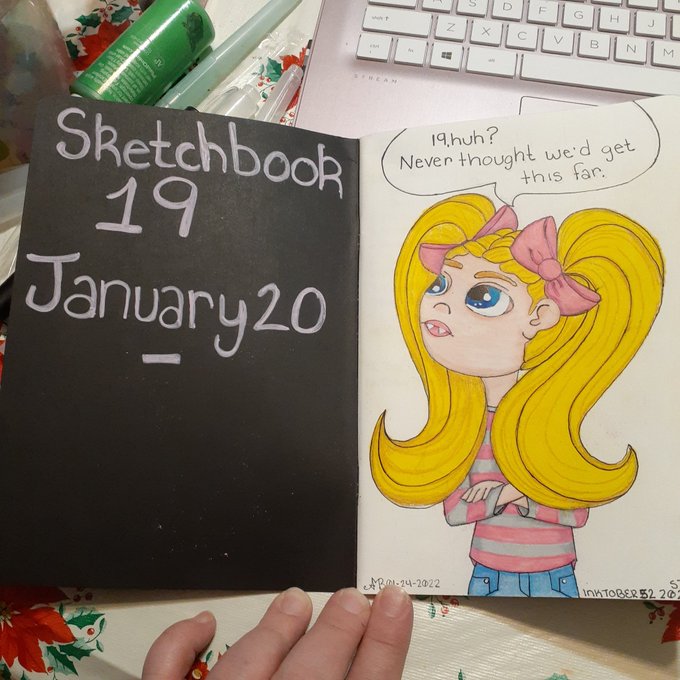 Sketchbook
19
January 20
-
19, huh?
Never thought we'd get
this far.
01-24-2022
INKTOBER52 202
STREAM
shift ↑
A S D F G H J
Z X C V B N M
ctrl fn alt